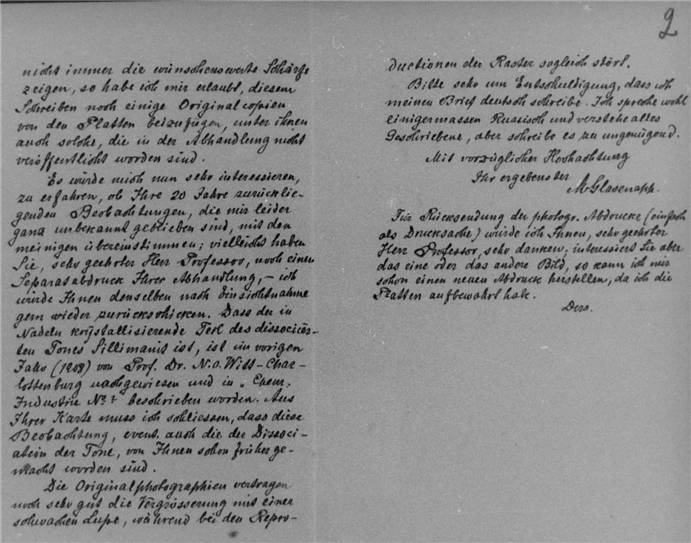 2
nicht immer die wünschenswerte Schärfe
zeigen, so habe ich mir erlaubt, diesem
Schreiben noch einige Originalcopien
von den Platten beizufügen, unter ihnen
auch solche, die in der Abhandlung nicht
veröffentlicht worden sind.
Es würde mich nun sehr interessieren,
zu erfahren, ob Ihre 20 Jahre zurücklie-
genden Beobachtungen, die mir leider
ganz unbekannt geblieben sind, mit den
meinigen übereinstimmen; vielleicht haben
Sie, sehr geehrter Herr Professor, noch einen
Separatabdruck Ihrer Abhandlung, – ich
würde Ihnen denselben nach Einsichtnahme
gern wieder zurückschicken. Dass der in
Nadeln krystallisierende Teil des dissociier-
ten Tones Sillimanit ist, ist im vorigen
Jahr (1908) von Prof. Dr. N. O. Witt-Char-
lottenburg nachgewiesen und in „Chem.
Industrie № 7 beschrieben worden. Aus
Ihrer Karte muss ich schliessen, dass diese
Beobachtung, event. auch die der Dissoci-
ation der Tone, von Ihnen schon früher ge-
macht worden sind.
Die Originalphotographien vertragen
noch sehr gut die Vergrösserung mit einer
schwachen Lupe, während bei den Repro-
ductionen der Raster sogleich stört.
Bitte sehr um Entschuldigung, dass ich
meinen Brief deutsch schreibe. Ich spreche wohl
einigermassen Russisch und verstehe alles
Geschriebene, aber schreibe es zu ungenügend.
Mit vorzüglicher Hochachtung
Ihr ergebenster
M. Glasenapp.
Für Rücksendung der photogr. Abdrücke (einfach
als Drucksache) würde ich Ihnen, sehr geehrter
Herr Professor, sehr danken; interessirt Sie aber
das eine oder das andere Bild, so kann ich mir
schon einen neuen Abdruck herstellen, da ich die
Platten aufbewahrt habe.
Ders.